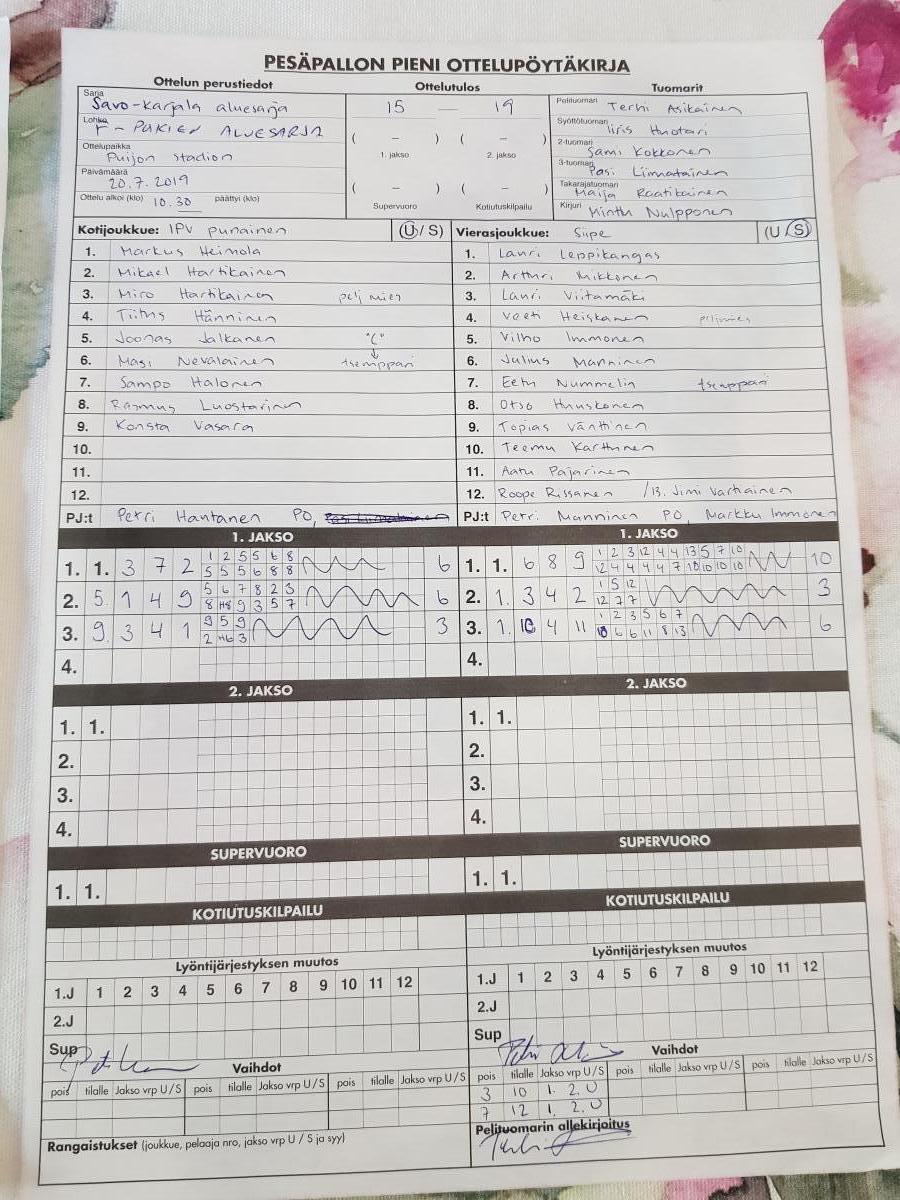 PESÄPALLON PIENI OTTELUPÖYTÄKIRJA
Ottelun perustiedot Ottelutulos Tuomarit
Sarja Savo-Karjala aluesarja
Lohko F - POIKIEN ALUESARJA
Ottelupaikka Puijon stadion
Päivämäärä 20.7.2019
Ottelu alkoi (klo) 10.30 päättyi (klo)
15 — 19
( – ) ( – )
1. jakso 2. jakso
( – ) ( – )
Supervuoro Kotiutuskilpailu
Pelituomari Terhi Asikainen
Syöttötuomari Iiris Huotari
2-tuomari Sami Kokkonen
3-tuomari Pasi Liimatainen
Takarajatuomari Maija Raatikainen
Kirjuri Minttu Nulpponen
Kotijoukkue: IPV punainen (U/S)
1. Markus Heimola
2. Mikael Hartikainen
3. Miro Hartikainen pelimies
4. Tiitus Hänninen
5. Joonas Jalkanen "C"
6. Masi Nevalainen tsemppari
7. Sampo Halonen
8. Rasmus Luostarinen
9. Konsta Vasara
10.
11.
12.
PJ:t Petri Hantanen PO,
Vierasjoukkue: Siipe (U/S)
1. Lauri Leppikangas
2. Arthuri Mikkonen
3. Lauri Viitamäki
4. Veeti Heiskanen pelimies
5. Vilho Immonen
6. Julius Manninen
7. Eetu Nummelin tsemppari
8. Otso Huuskonen
9. Topias Vänttinen
10. Teemu Karttunen
11. Aatu Pajarinen
12. Roope Rissanen /13. Jimi Varhainen
PJ:t Petri Manninen PO, Markku Immonen
1. JAKSO
1. 1. 3 7 2 1 2 5 5 6 8 6
5 5 5 6 8 8
2. 5. 1 4 9 5 6 7 8 2 3 6
8 H8 9 3 5 7
3. 9. 3 4 1 9 5 9 3
2 H6 3
4.
1. JAKSO
1. 1. 6 8 9 1 2 3 12 4 4 13 5 7 10 10
12 4 4 4 4 7 10 10 10 10
2. 1. 3 4 2 1 5 12 3
12 7 7
3. 1. 10 4 11 1 2 3 5 6 7 6
10 6 6 11 8 13
4.
2. JAKSO
1. 1.
2.
3.
4.
2. JAKSO
1. 1.
2.
3.
4.
SUPERVUORO
1. 1.
SUPERVUORO
1. 1.
KOTIUTUSKILPAILU
KOTIUTUSKILPAILU
Lyöntijärjestyksen muutos
1.J 1 2 3 4 5 6 7 8 9 10 11 12
2.J
Sup
Lyöntijärjestyksen muutos
1.J 1 2 3 4 5 6 7 8 9 10 11 12
2.J
Sup
Vaihdot
pois tilalle Jakso vrp U/S pois tilalle Jakso vrp U/S pois tilalle Jakso vrp U/S
Vaihdot
pois tilalle Jakso vrp U/S pois tilalle Jakso vrp U/S pois tilalle Jakso vrp U/S
3 10 1. 2. U
7 12 1. 2. U
Rangaistukset (joukkue, pelaaja nro, jakso vrp U / S ja syy)
Pelituomarin allekirjoitus